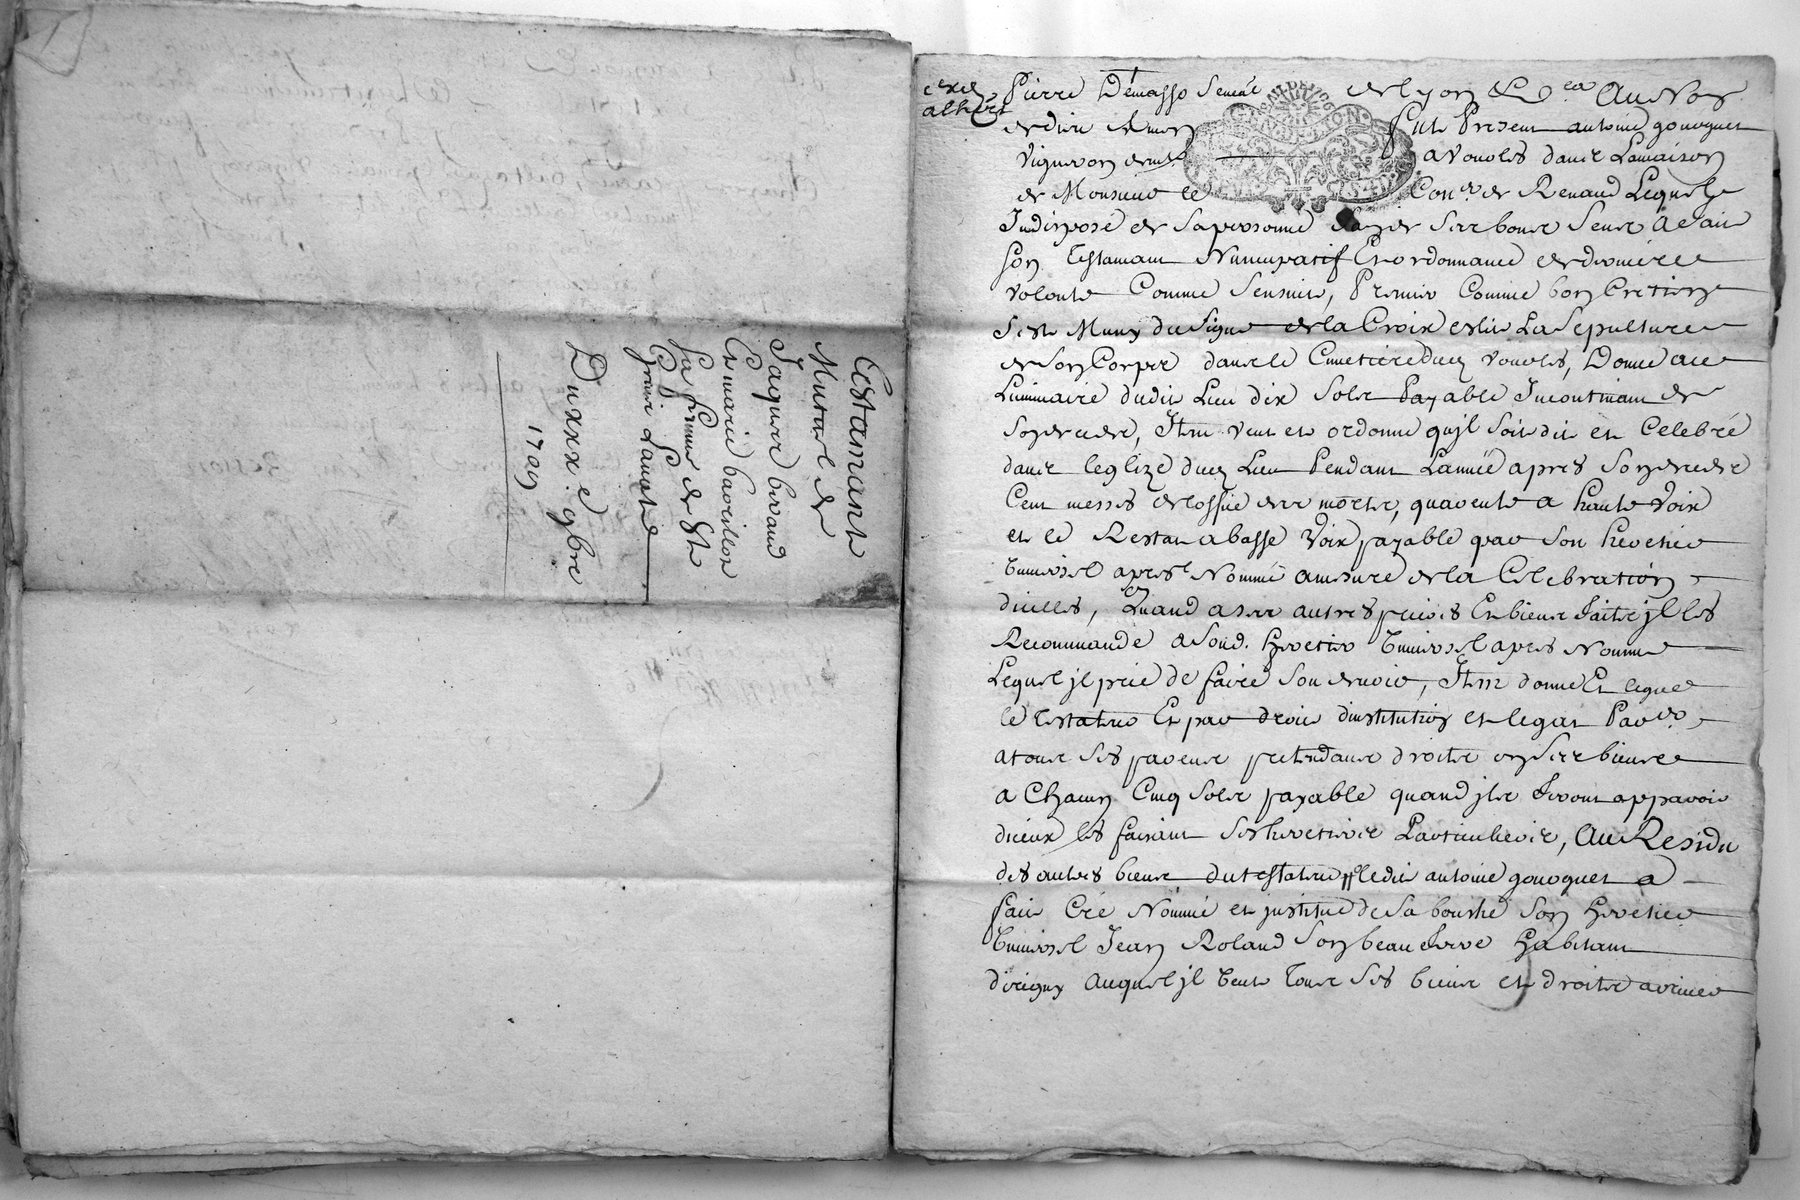 Testamant
Mutuel de
Jaques biraud
Et marie bavrillon
sa femme de St
Du xxx e 9bre
1709
Pierre de lyon Au Nom
de dieu Amen fut Present antoine gouoguet
Vigneron a Vouoles dans La maison
de Monsieur de Renaud Lequel
Indisposé de sa personne de son bon a fait
son Testamant Nuncupatif Et ordonnance de derniere
volonte Comme sensuit, Premier Comme bon Cretien
sest Muny du Signe de la Croix eslit La Sepulture
de son Corps dans le Cimetiere dud vouoles, Donne au
Luminaire dudit Lieu dix sols Payable Incontinant
son deces, Itm veut et ordonne quil soit dit et Celebré
dans leglize dud Lieu Pendant Lannée apres son deces
Cent messes de loffice des morts, quarente a haute Voix
et le Restan a basse Voix payable par son heretier
Universel apres Nommé a mesure de la Celebration
dicelles, Quand a ses autres prieres Et biens faits jl les
Recommande a sond. heretier Universel apres Nomme
Lequel jl prie de faire son devoir, Itm donne Et legue
le testateur Et par droit dinstitution et legat
a tous ses parens pretendans droits en ses biens
a Chacun Cinq sols payable quand jls feront apparoir
diceux les faisant ses heretiers Particuliers, Au Residu
des autres biens du testateur ledit antoine gouoguet a
fait Cré Nommé et justitue de sa bouche son heretier
Universel Jean Roland son beau frere habitant
dirigny auquel jl veut tous ses biens et droits